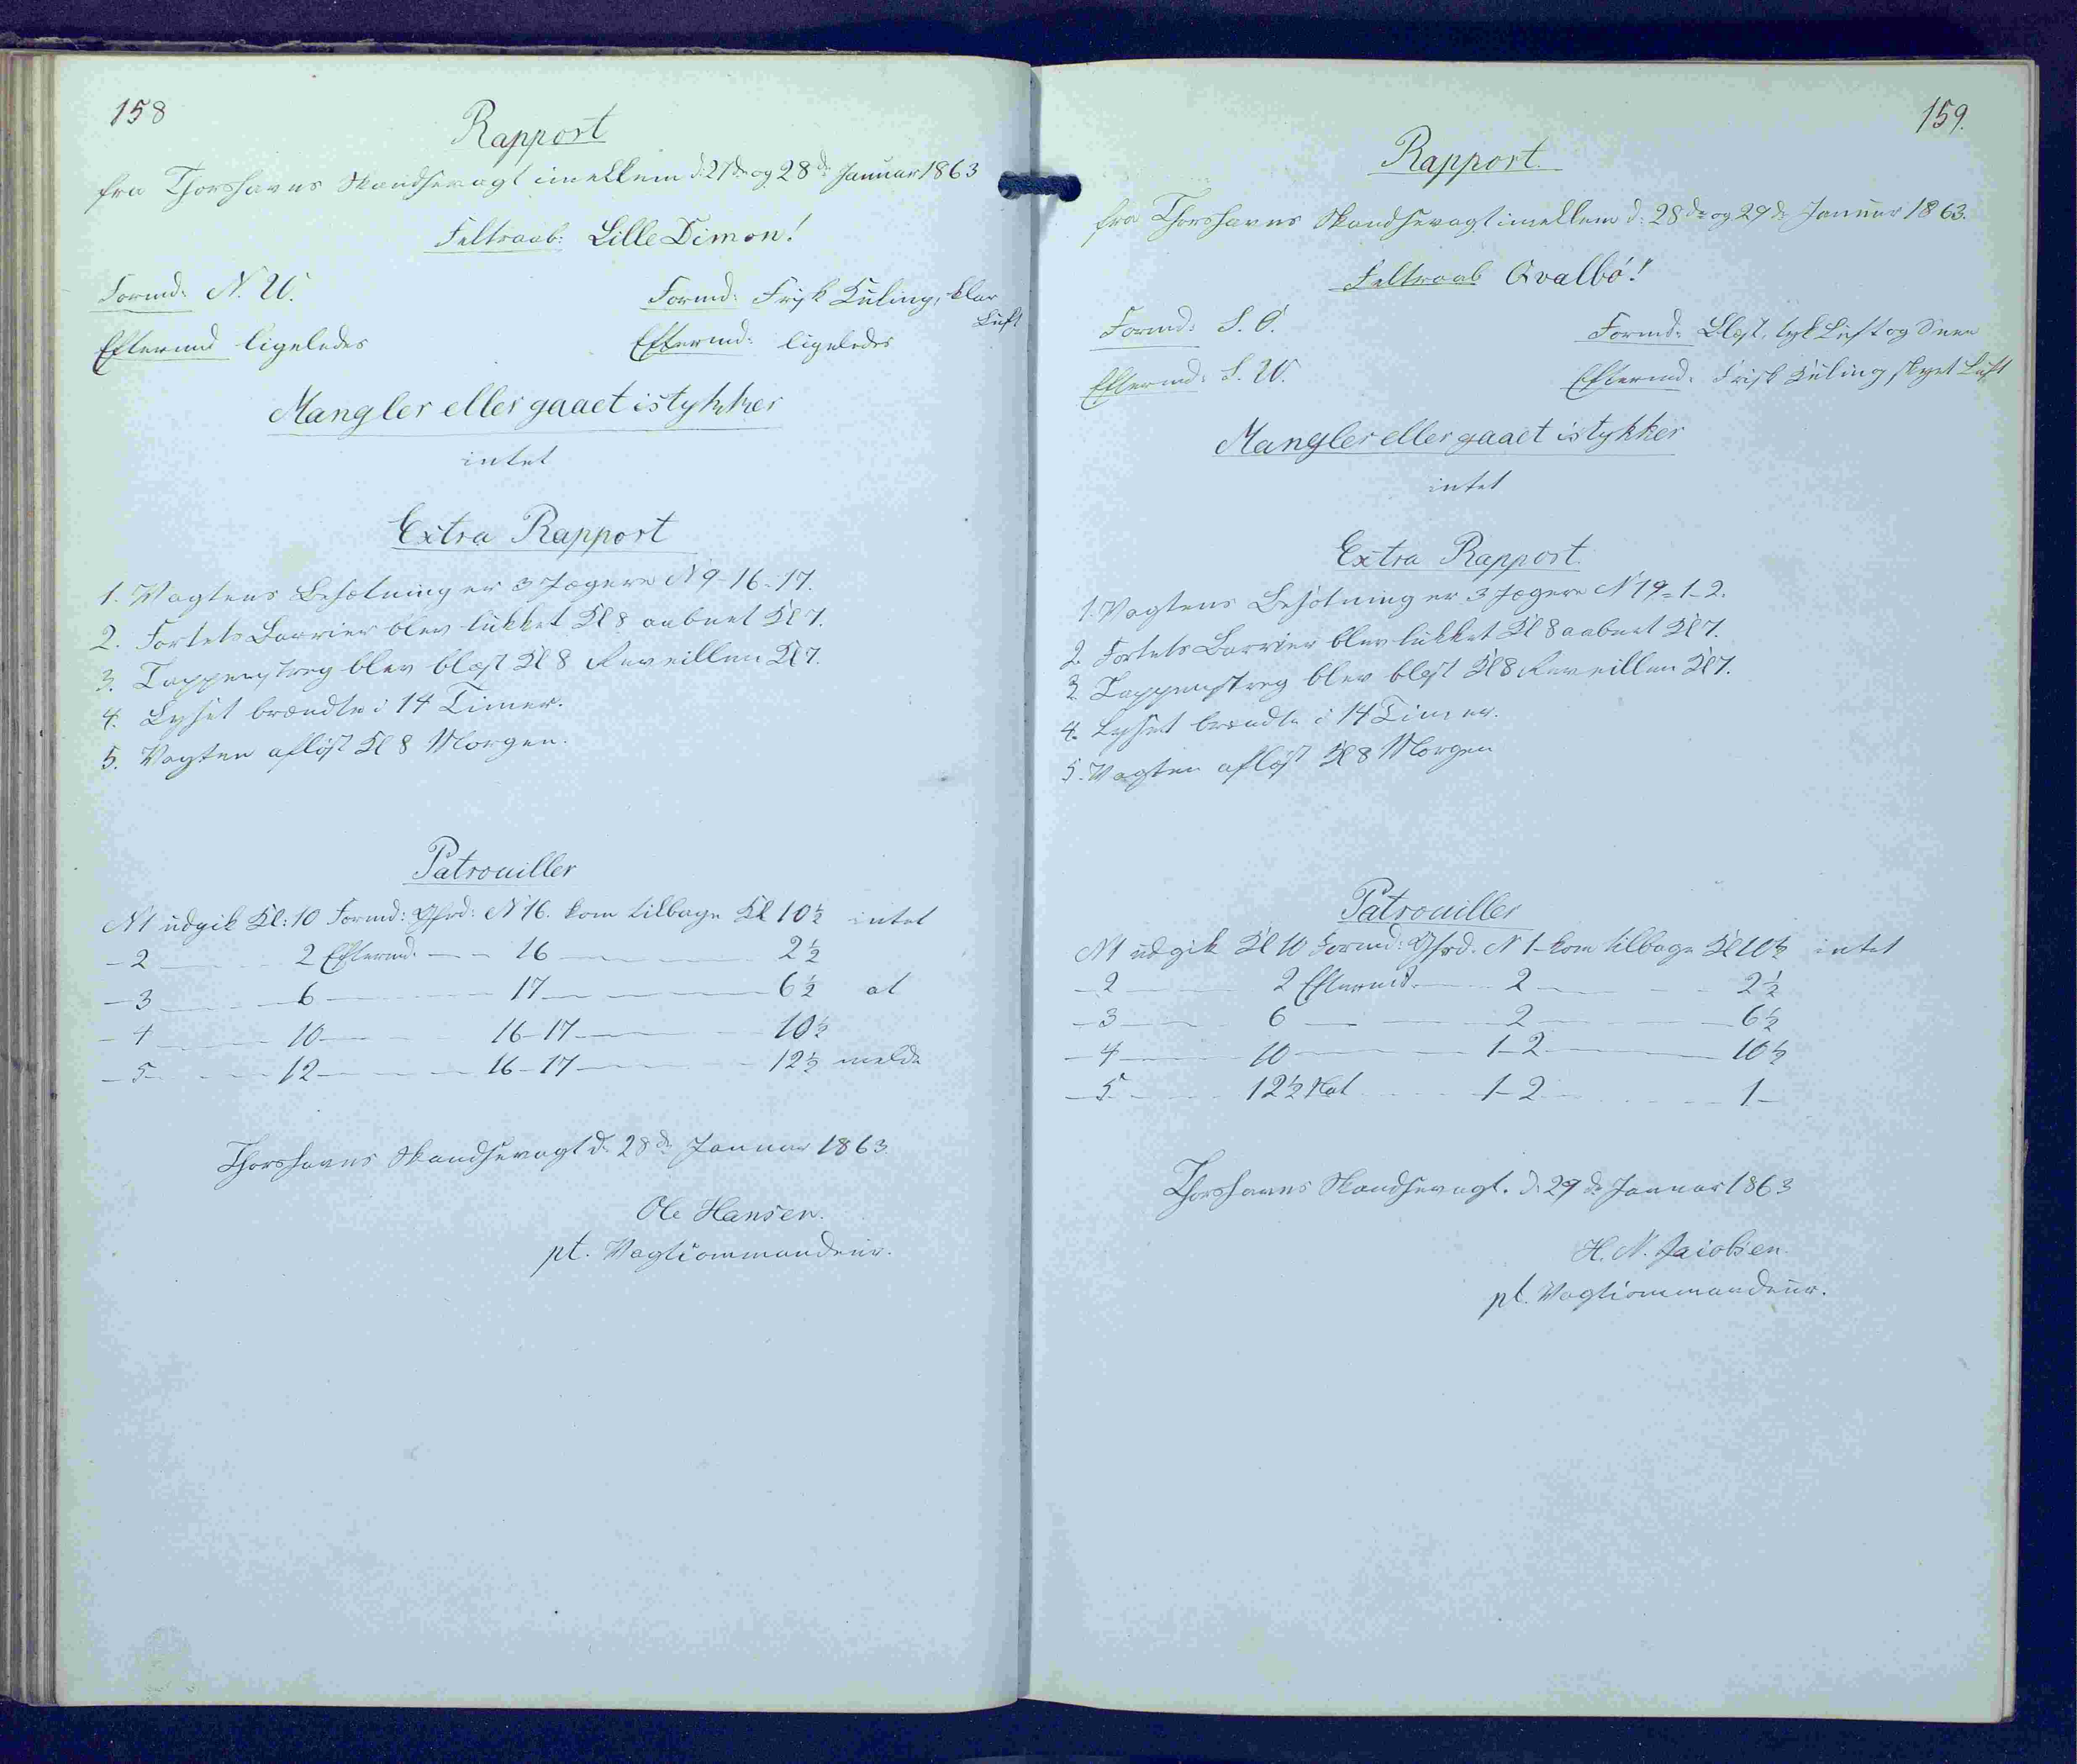 158
Rapport
fra Thorshavns Skandsevagt imellem d: 27de og 28de Januar 1863
Feltraab: Lille Dimon!
Formd: N. V.
Formd: Frisk Kuling, klar
Luft
Eftermd ligeledes
Eftermd: ligeledes
Mangler eller gaaet istykker
intet
Extra Rapport
1. Vagtens Besætning er 3 Jægere N 9-16-17.
2. Fortets Barrier blev lukket Kl 8 aabnet Kl 7.
3. Tappenstreg blev blæst Kl 8 Reveillen Kl 7.
4. Lyset brændte i 14 Timer.
5. Vagten afløst Kl 8 Morgen.
Patrouiller
N 1 udgik Kl: 10 Formd: N 16. kom tilbage Kl 10½ intet
- 2 — 2 Eftermd. — 16 — 2½
- 3 — 6 — 17 — 6½ at
- 4 — 10 — 16-17 — 10½
- 5 — 12 — 16-17 — 12½ melde
Thorshavns Skandsevagt d. 28de Januar 1863.
Ole Hansen.
pt. Vagtcommandeur.
159.
Rapport.
fra Thorshavns Skandsevagt imellem d: 28de og 29de Januar 1863.
Feltraab Qvalbø!
Formd: S. Ø.
Formd: Blæst, tyk Luft og Snee
Eftermd: S. V.
Eftermd: Frisk Kuling skyet Luft
Mangler eller gaaet istykker
intet
Extra Rapport.
1. Vagtens Besætning er 3 Jægere N 19-1-2.
2. Fortets Barrier blev lukket Kl 8 aabnet Kl 7.
3. Tappenstreg blev blæst Kl 8 Reveillen Kl 7.
4. Lyset brændte i 14 Timer.
5. Vagten afløst Kl 8 Morgen
Patrouiller
N 1 udgik Kl 10 Formd: N 1 - kom tilbage Kl 10½ intet
- 2 — 2 Eftermd. — 2 — 2½
- 3 — 6 — 2 — 6½
- 4 — 10 — 1-2 — 10½
- 5 — 12½ Nat — 1-2 — 1 -
Thorshavns Skandsevagt. d. 29de Januar 1863
H. N. Jacobsen.
pt. Vagtcommandeur.